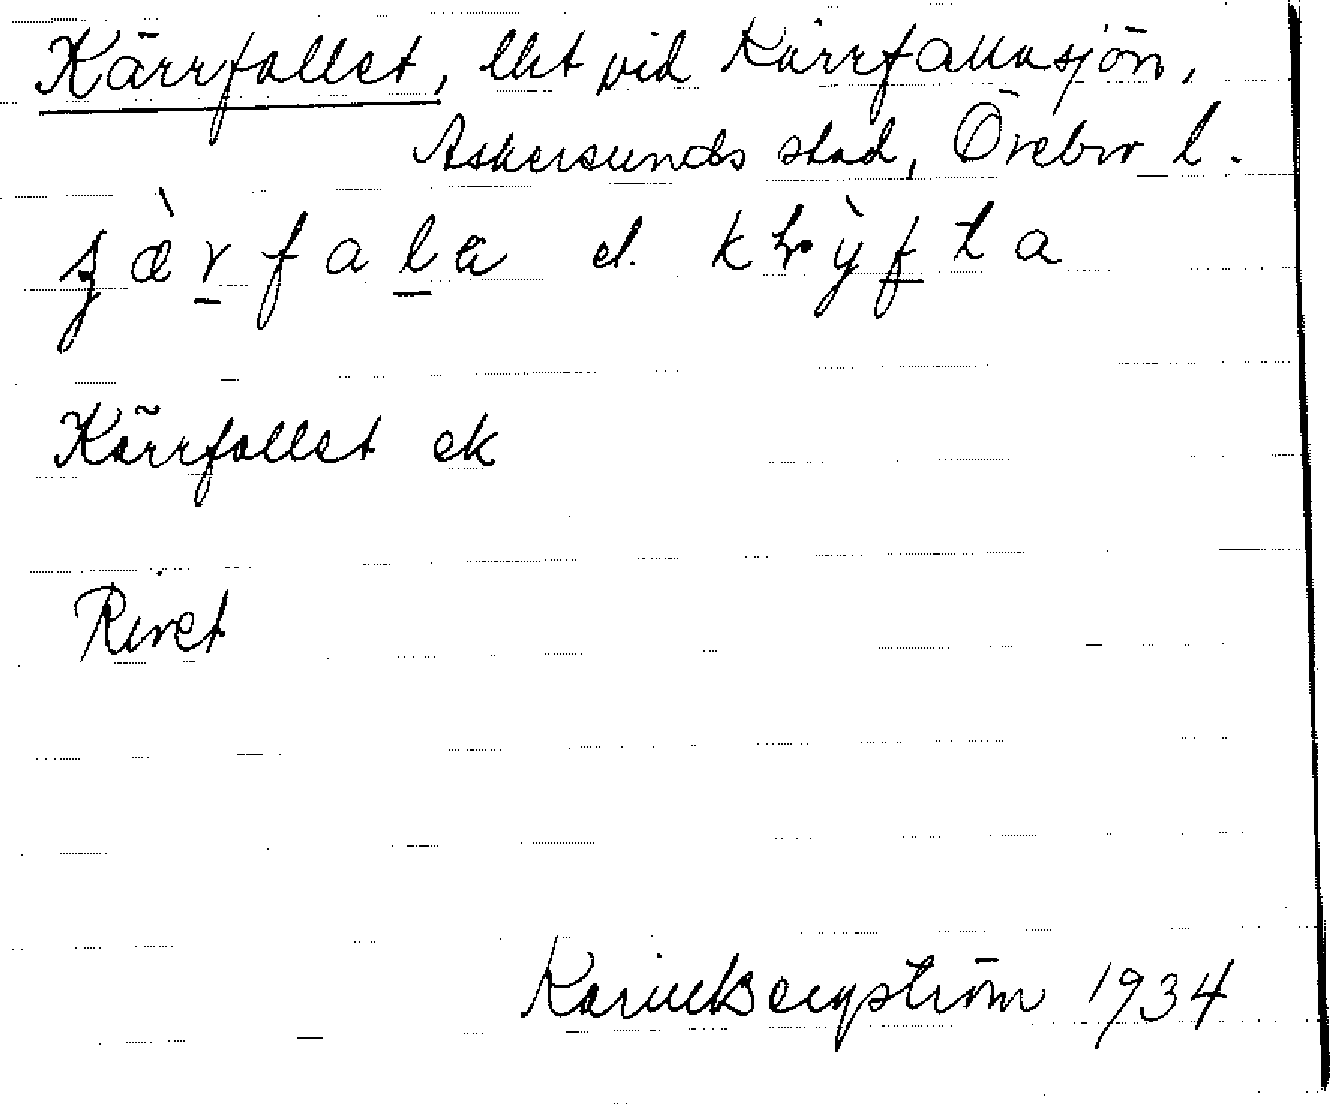 Kärrfallet, lht vid Kärrfallasjön,
Askersunds stad, Örebro l.
jæ̀rfala el. krỳfta
Kärrfallet ek
Rivet
Karin Bergström 1934